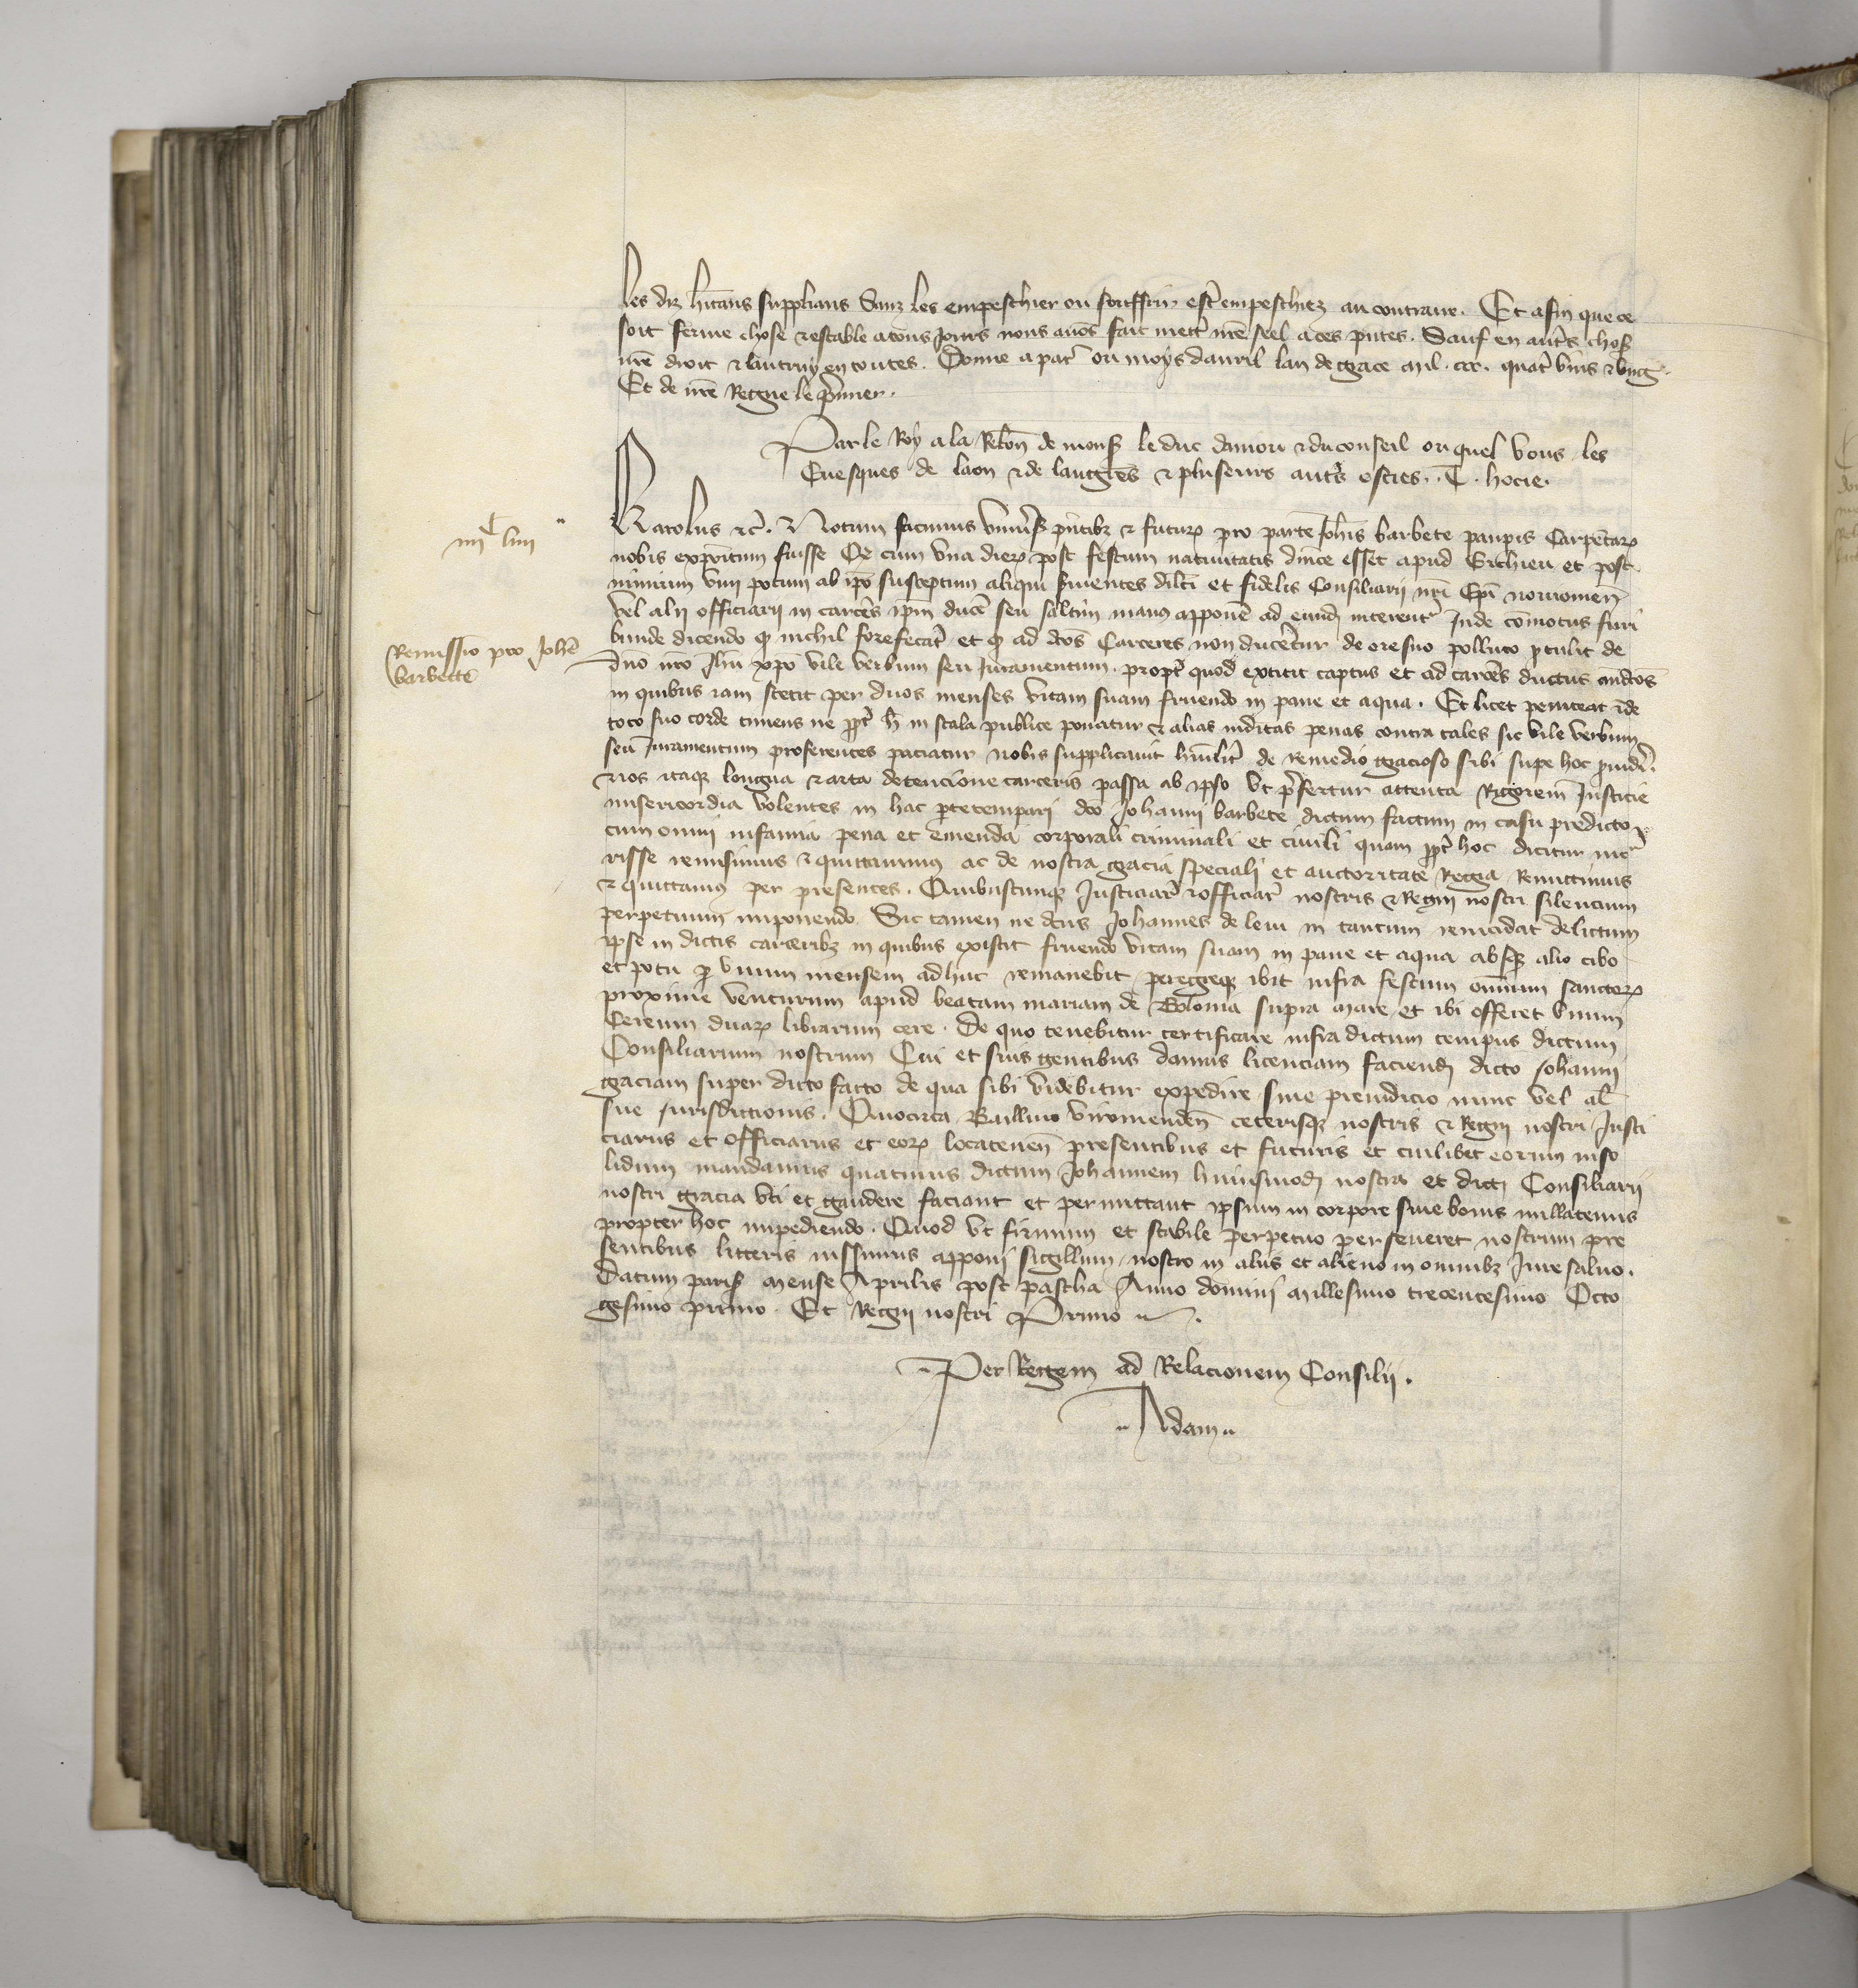 les diz hitans supplians Sanz les empeschier ou souffrir estre empeschiez au contraire. Et afin que ce
soit ferme chose & estable a tous jours nous avons fait mettre nre seel a ces pntes. Sauf en autres choses
nre droit & lautruy en toutes. Donne a paris ou moys davril lan de grace mil. ccc. quatre vins & ung.
Et de nre Regne le premier.
Par le Roy a la Relon de mons le duc danjou & du conseil ouquel vous les
Evesques de laon & de langres & pluseurs autres esties. T. hocie.
iiiic liiii
Karolus &c. Notum facimus universis pntibz & futuris pro parte Johis barbete paupis Carpentarii
nobis expoitum fuisse Qz cum una dierum post festum nativitatis dnice esset apud et post
nimium vini potum ab ipo susceptum aliqui servientes dilci et fidelis Consiliarii nri Epi noviomen
vel alii officiarii in carceres ipm ducere seu saltim manus apponere ad eundem interent Inde comotus furi
bunde dicendo qz nichil forefecerat et qz ad dcos Carceres non duceretur de ore suo polluto ptulit de
Remissio pro Johe
barbette
dno nro Jhu xpo vile verbum seu Juramentum. propter quod extitit captus et ad carceres ductus andcos
in quibus iam stetit per duos menses vitam suam fruendo in pane et aqua. Et licet peniteat inde
toto suo corde timens ne ppt h in scala publice ponatur & alias inditas penas contra tales sic vile verbum
seu Juramentum proferentes paciatur nobis supplicavit humilit de remedio gracioso sibi supe hoc pvideri.
Nos itaqz longua & arta detencione carceris passa ab ipso ut prefertur attenta Rigorem Justicie
misericordia volentes in hac parte tempari dco Johanni barbete dictum factum in casu predicto
cum omni infamia pena et emenda corporali criminali et civili quam ppt hoc dicitur incur
risse remisimus & quittavimus ac de nostra gracia speciali et auctoritate Regia Remittimus
& quittamus per presentes. Quibuscunqz Justiciariis & officiariis nostris & Regni nostri silencium
perpetuum imponendo. Sic tamen ne dcus Johannes de levi in tantum reincidat delictum
ipse in dictis carceribz in quibus existit fruendo vitam suam in pane et aqua absqz alio cibo
et potu p unum mensem adhuc remanebit peregreqz ibit infra festum omnium sanctorum
proxime venturum apud beatam mariam de Bolonia supra mare et ibi offeret unum
Cereum duarum librarum cere. De quo tenebitur certificare infra dictum tempus dictum
Consiliarium nostrum Cui et suis gentibus damus licenciam faciendi dicto Johanni
graciam super dicto facto de qua sibi videbitur expedire sine preiudicio nunc vel al
sue Jurisdictionis. Quocirca Baillivo viromenden ceterisqz nostris & Regni nostri Justi
ciariis et officiariis et eorum locatenen presentibus et futuris et cuilibet eorum inso
lidum mandamus quatinus dictum Johannem huiusmodi nostra et dicti Consiliarii
nostri gracia uti et gaudere faciant et permittant ipsum in corpore sive bonis nullatenus
propter hoc impediendo. Quod ut firmum et stabile perpetuo perseveret nostrum pre
sentibus litteris iussimus apponi sigillum, nostro in aliis et alieno in omnibz Jure salvo.
Datum parisius mense Aprilis post pascha Anno domini millesimo trecentesimo Octo
gesimo primo. Et Regni nostri Primo.
Per Regem ad Relacionem Consilii.
Adam